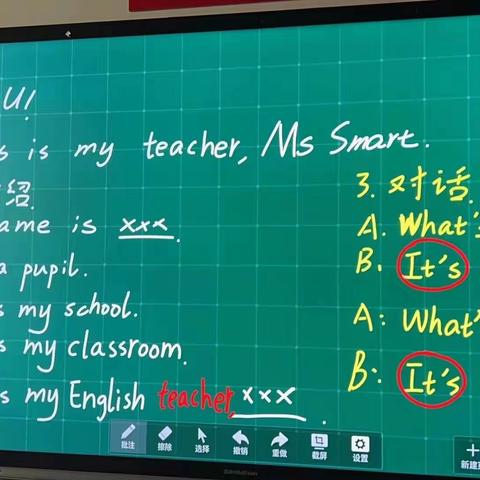 U!
s is my teacher, Ms Smart.
绍.
ame is xxx.
a pupil.
s my school.
s my classroom.
s my English teacher, xxx.
3. 对话.
A. What's
B. It's
A: What'
B: It's
批注 擦除 选择 撤销 重做 截屏 设置
新建